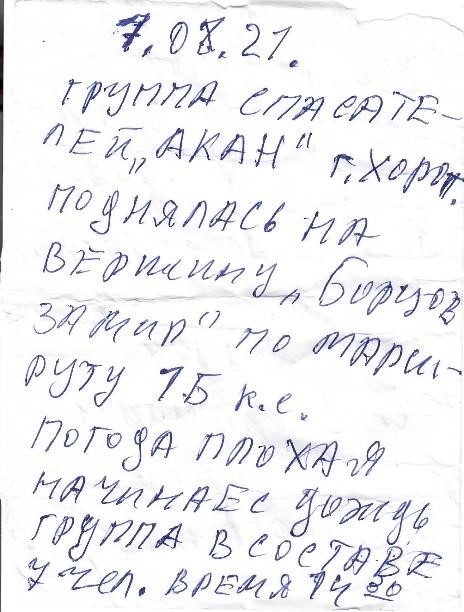 7.08.21.
ГРУППА СПАСАТЕ-
ЛЕЙ „АКАН" Г. ХОРОГ.
ПОДНЯЛАСЬ НА
ВЕРШИНУ „Борцов
ЗА МИР" ПО МАРШ-
РУТУ 1Б к.с.
ПОГОДА ПЛОХАЯ
НАЧИНАЕС ДОЖДЬ
ГРУППА В СОСТАВЕ
7 чел. ВРЕМЯ 14 00